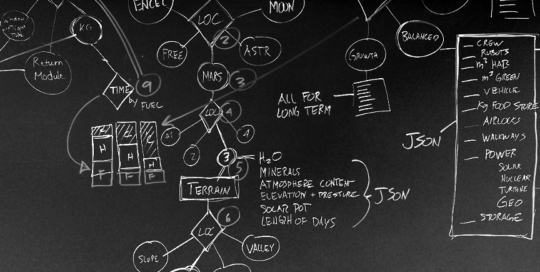 ENCEL
LOC
MOON
KG
FREE
2
ASTR
Return
Module
MARS
3
GROWTH
BALANCED
TIME
by
FUEL
9
LOC
4
ALL FOR
LONG TERM
H
H
H
F
F
F
2
3
5
TERRAIN
H2O
MINERALS
ATMOSPHERE CONTENT
ELEVATION + PRESSURE
SOLAR POT
LENGTH OF DAYS
JSON
LOC
6
SLOPE
VALLEY
JSON
— CREW
ROBOTS
— m³ HAB
— m³ GREEN
— VEHICLE
— Kg FOOD STORE
AIRLOCKS
— WALKWAYS
— POWER
SOLAR
NUCLEAR
TURBINE
GEO
— STORAGE